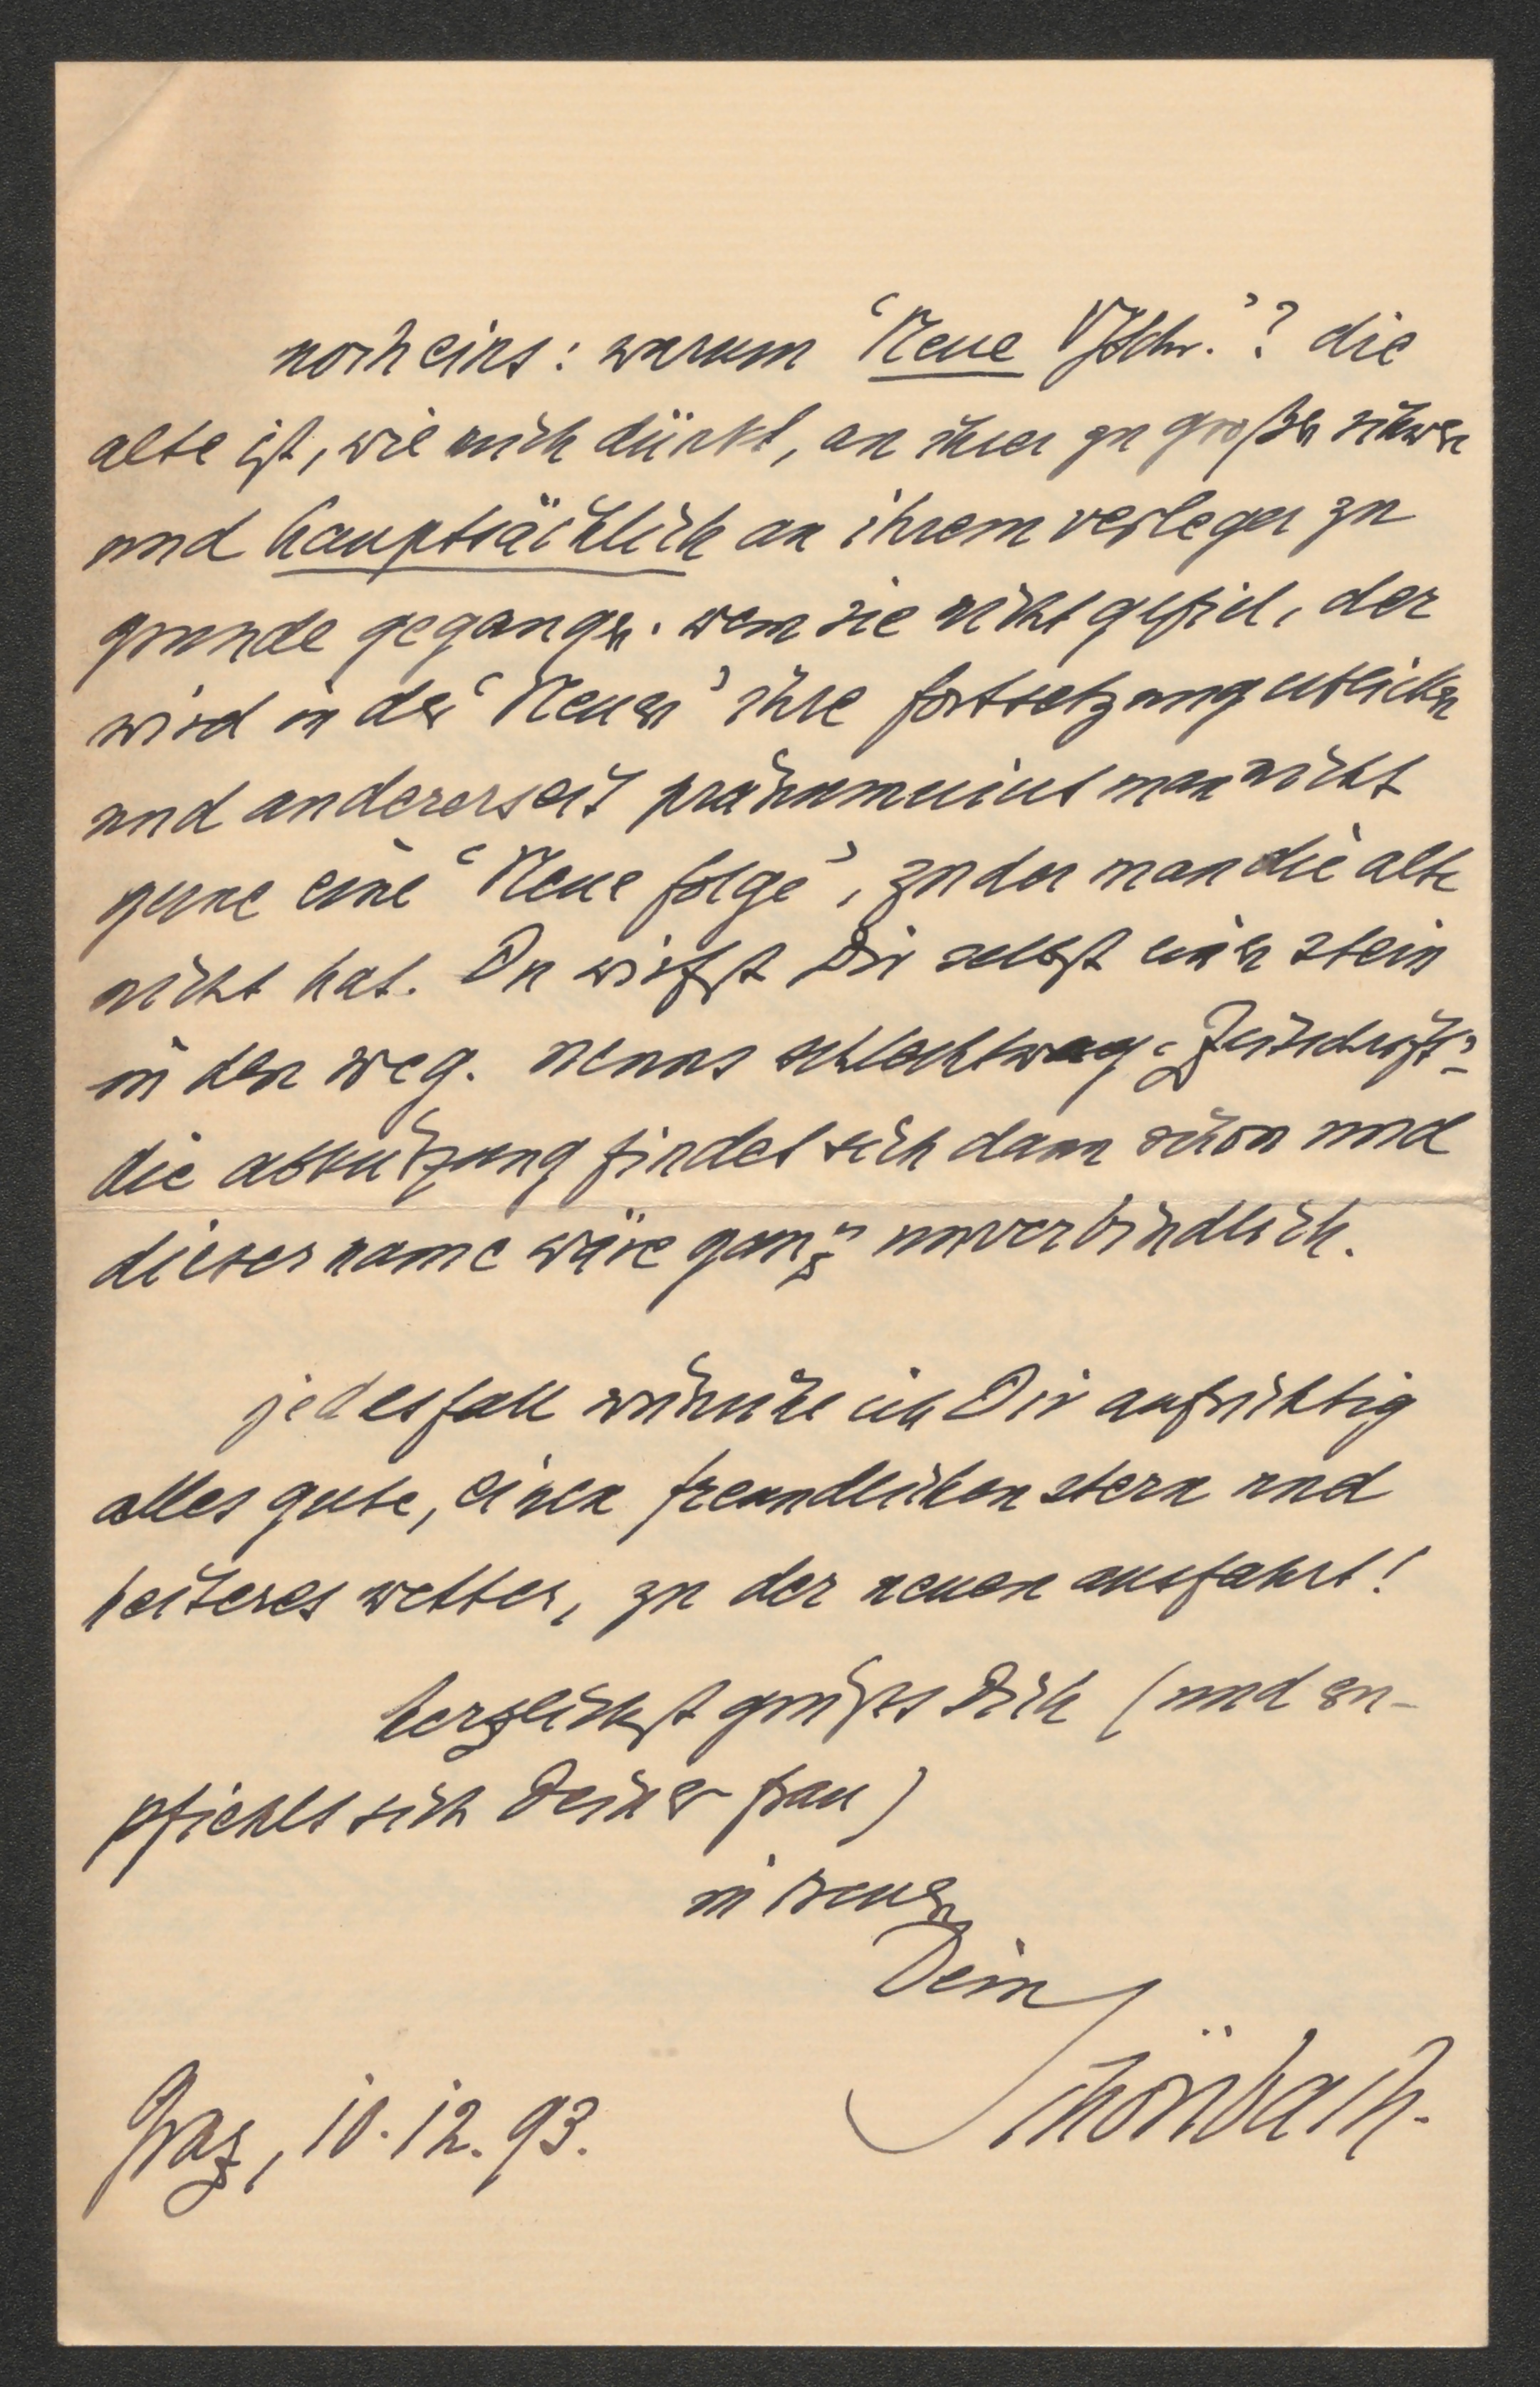 noch eins: warum ‘Neue Vjschr.’? die
alte ist, wie mich dünkt, an ihrer zu großen schwere
und hauptsächlich an ihrem verleger zu
grunde gegangen. wem sie nicht gefiel, der
wird in der ‘Neuen’ ihre fortsetzung erblicken
und andererseit pränumeriert man nicht
gerne eine ‘Neue folge’, zu der man die alte
nicht hat. Du wirfst Dir selbst einen stein
in den weg. nenns schlechtweg ‘Zeitschrift’ –
die abkürzung findet sich dann schon und
dieser name wäre ganz unverbindlich.
jedesfall wünsche ich Dir aufrichtig
alles gute, einen freundlichen stern und
heiteres wetter, zu der neuen ausfahrt!
herzlichst grüßt Dich (und em-
pfiehlt sich Deiner frau)
in treuen
Dein
Schönbach.
Graz, 10.12.93.